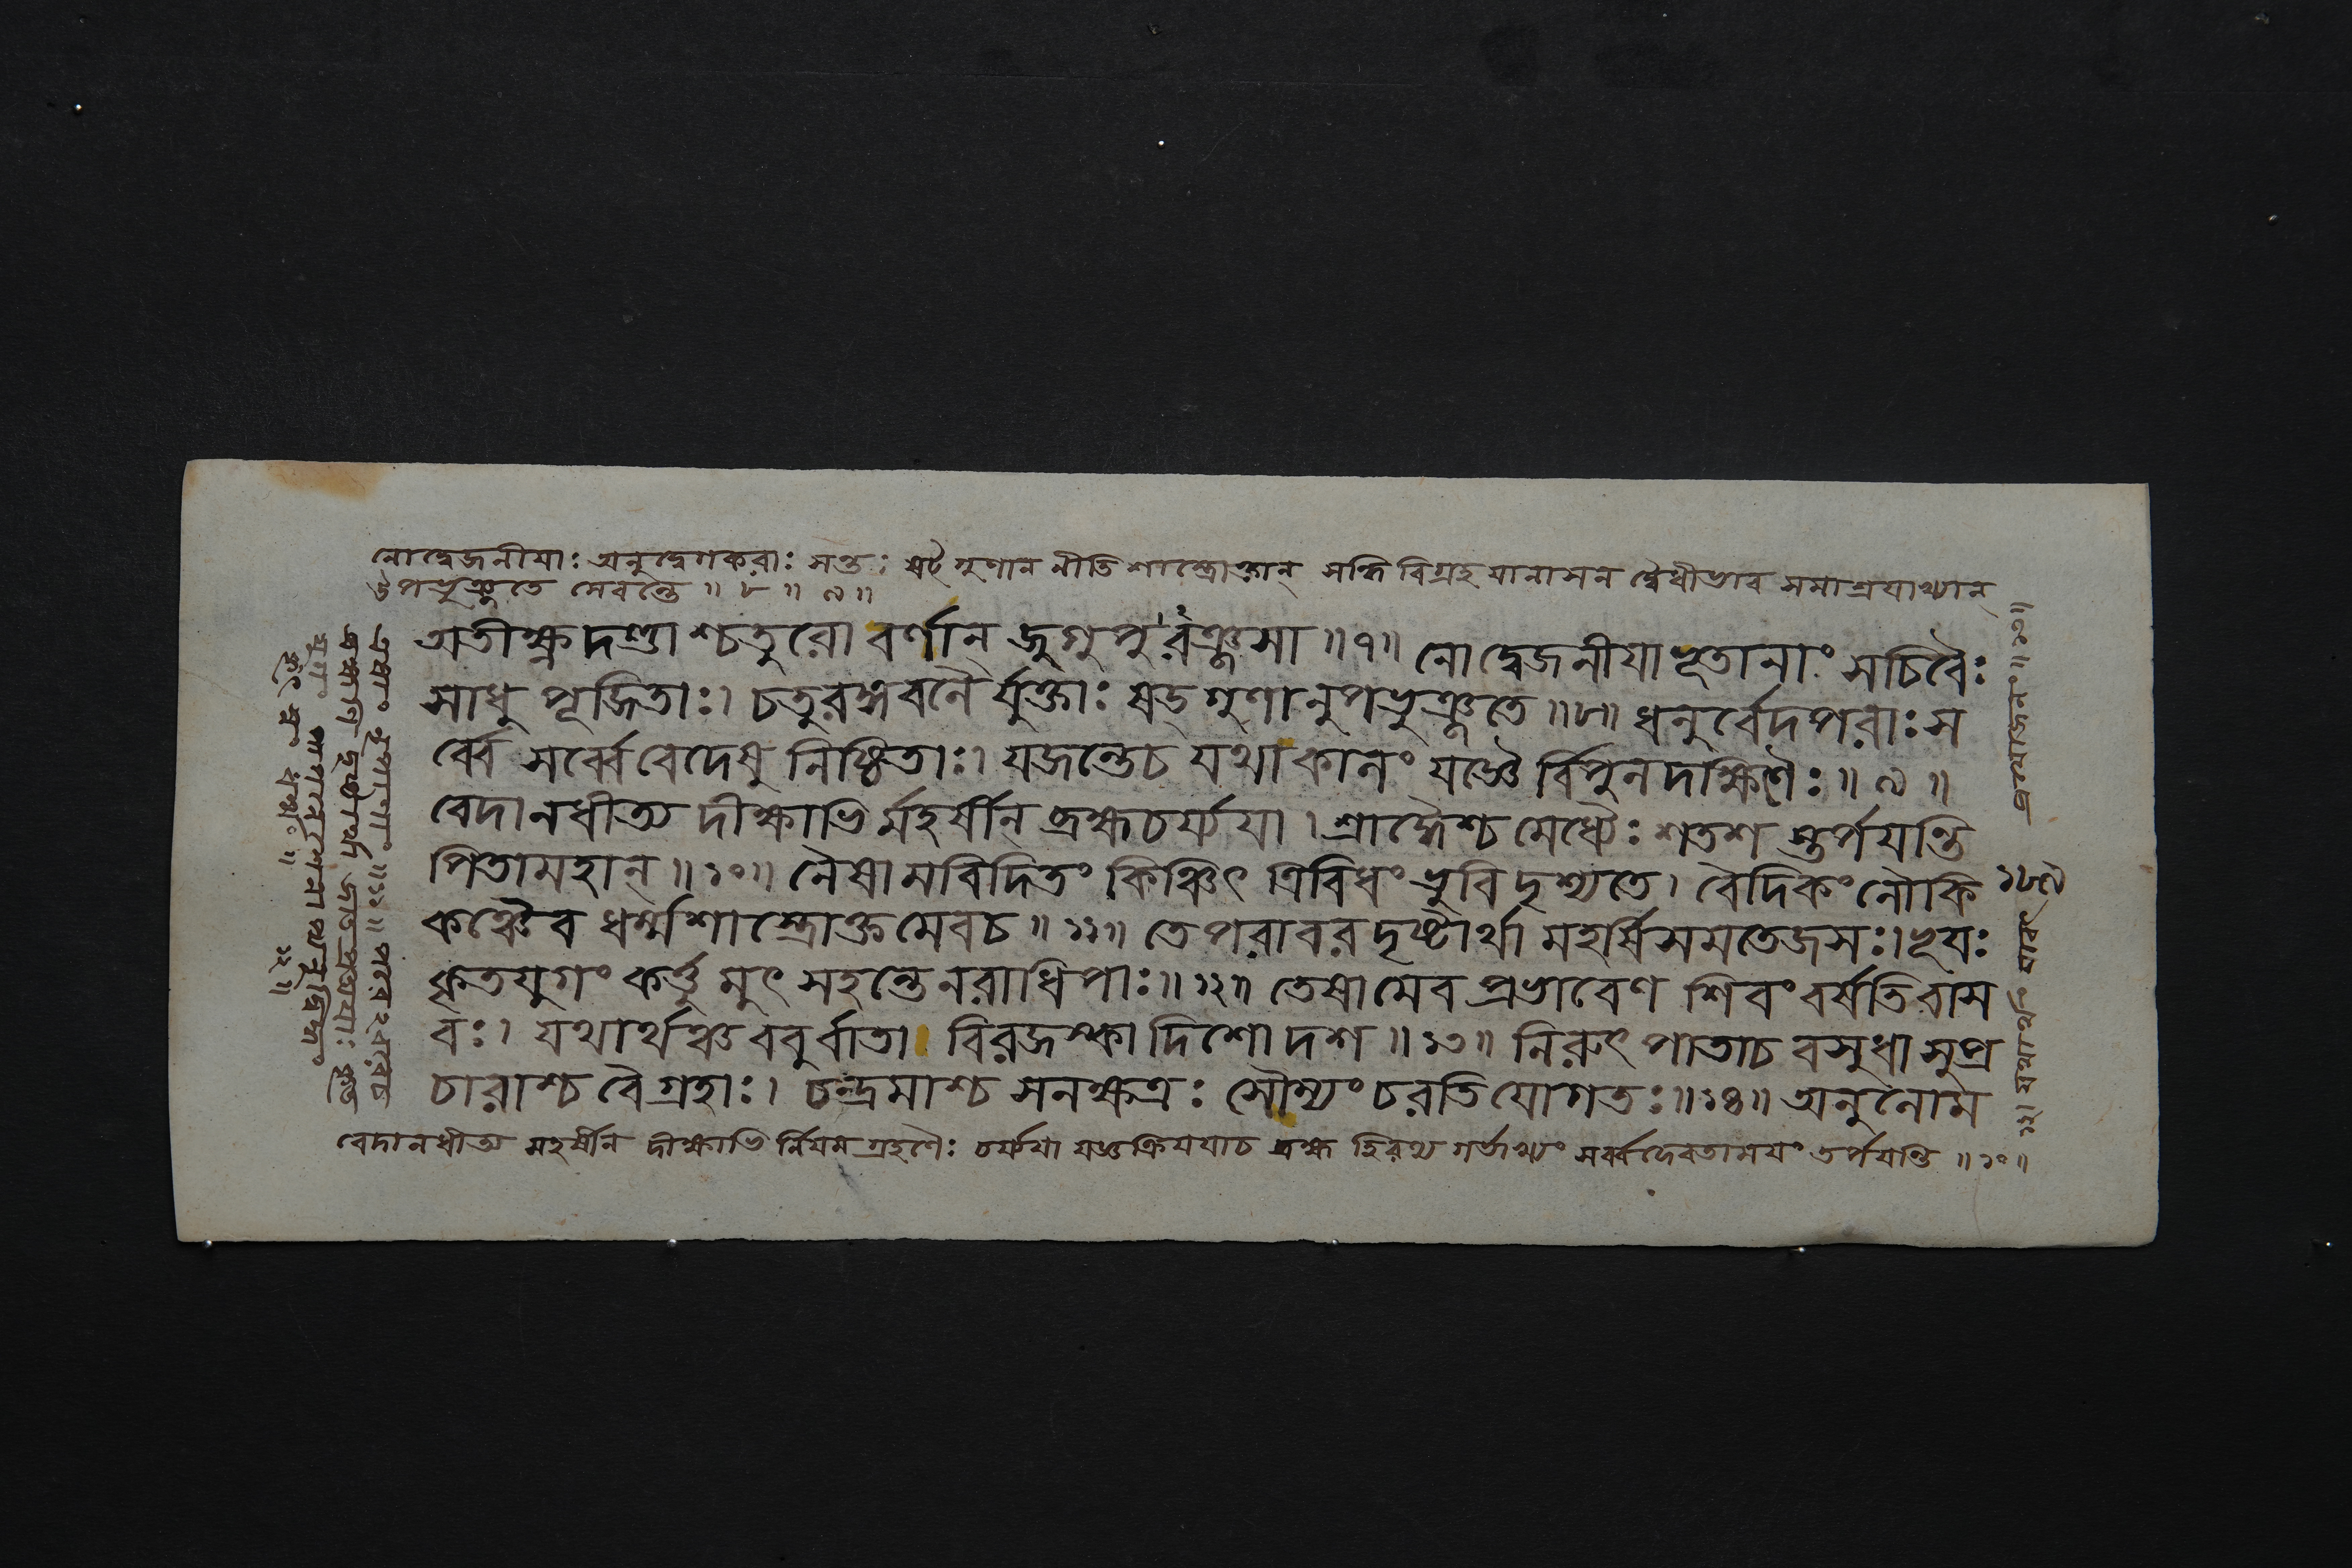 নোদ্বেজনীয়াঃ অনুদ্বেগকরাঃ সন্তঃ ষট্ গুণান নীতি শাস্ত্রোক্তান্ সন্ধি বিগ্রহ যানাসন দ্বৈধীভাব সমাশ্রয়াখ্যান্
উপভুঞ্জতে সেবন্তে ॥ ৮ ॥ ৯ ॥
অতীক্ষ্ণদণ্ডাশ্চতুরো বর্ণান্ জুগুপু রঞ্জসা ॥৭॥ নোদ্বেজনীয়া ভূতানাং সচিবৈঃ
সাধু পূজিতাঃ। চতুরঙ্গবলৈ র্যুক্তাঃ ষড্ গুণানুপভুঞ্জতে ॥৮॥ ধনুর্ব্বেদপরাঃ স
র্ব্বে সর্ব্বে বেদেষু নিষ্ঠিতাঃ। যজন্তেচ যথাকালং যজ্ঞৈ র্বিপুলদক্ষিণৈঃ ॥ ৯ ॥
বেদানধীত্য দীক্ষাভি র্মহর্ষীন্ ব্রহ্মচর্য্যয়া। শ্রাদ্ধৈশ্চ মেধ্যৈঃ শতশ স্তর্পয়ন্তি
পিতামহান্ ॥ ১০॥ নৈষামবিদিতং কিঞ্চিৎ ত্রিবিধং ভুবি দৃশ্যতে। বৈদিকং লৌকি
কঞ্চৈব ধর্ম্মশাস্ত্রোক্তমেবচ ॥ ১১॥ তে পরাবরদৃষ্টার্থা মহর্ষিসমতেজসঃ। ভূয়ঃ
কৃতযুগং কর্ত্তুমুৎসহন্তে নরাধিপাঃ॥ ১২॥ তেষামেব প্রভাবেণ শিবং বর্ষতি বাস
বঃ। যথার্থঞ্চ ববুর্বাতা বিরজস্কা দিশোদশ ॥ ১৩॥ নিরুৎপাতাচ বসুধা সুপ্র
চারাশ্চ বৈ গ্রহাঃ। চন্দ্রমাশ্চ সনক্ষত্রঃ সৌম্যং চরতি যোগতঃ॥ ১৪॥ অনুলোম
বেদানধীত্য মহর্ষীন্ দীক্ষাভি র্নিয়মগ্রহণৈঃ চর্য্যয়া যজ্ঞক্রিয়য়াচ ব্রহ্ম হিরণ্য গর্ভাখ্যং সর্ব্বদেবতাময়ং তর্পয়ন্তি ॥ ১০॥
১৮৯